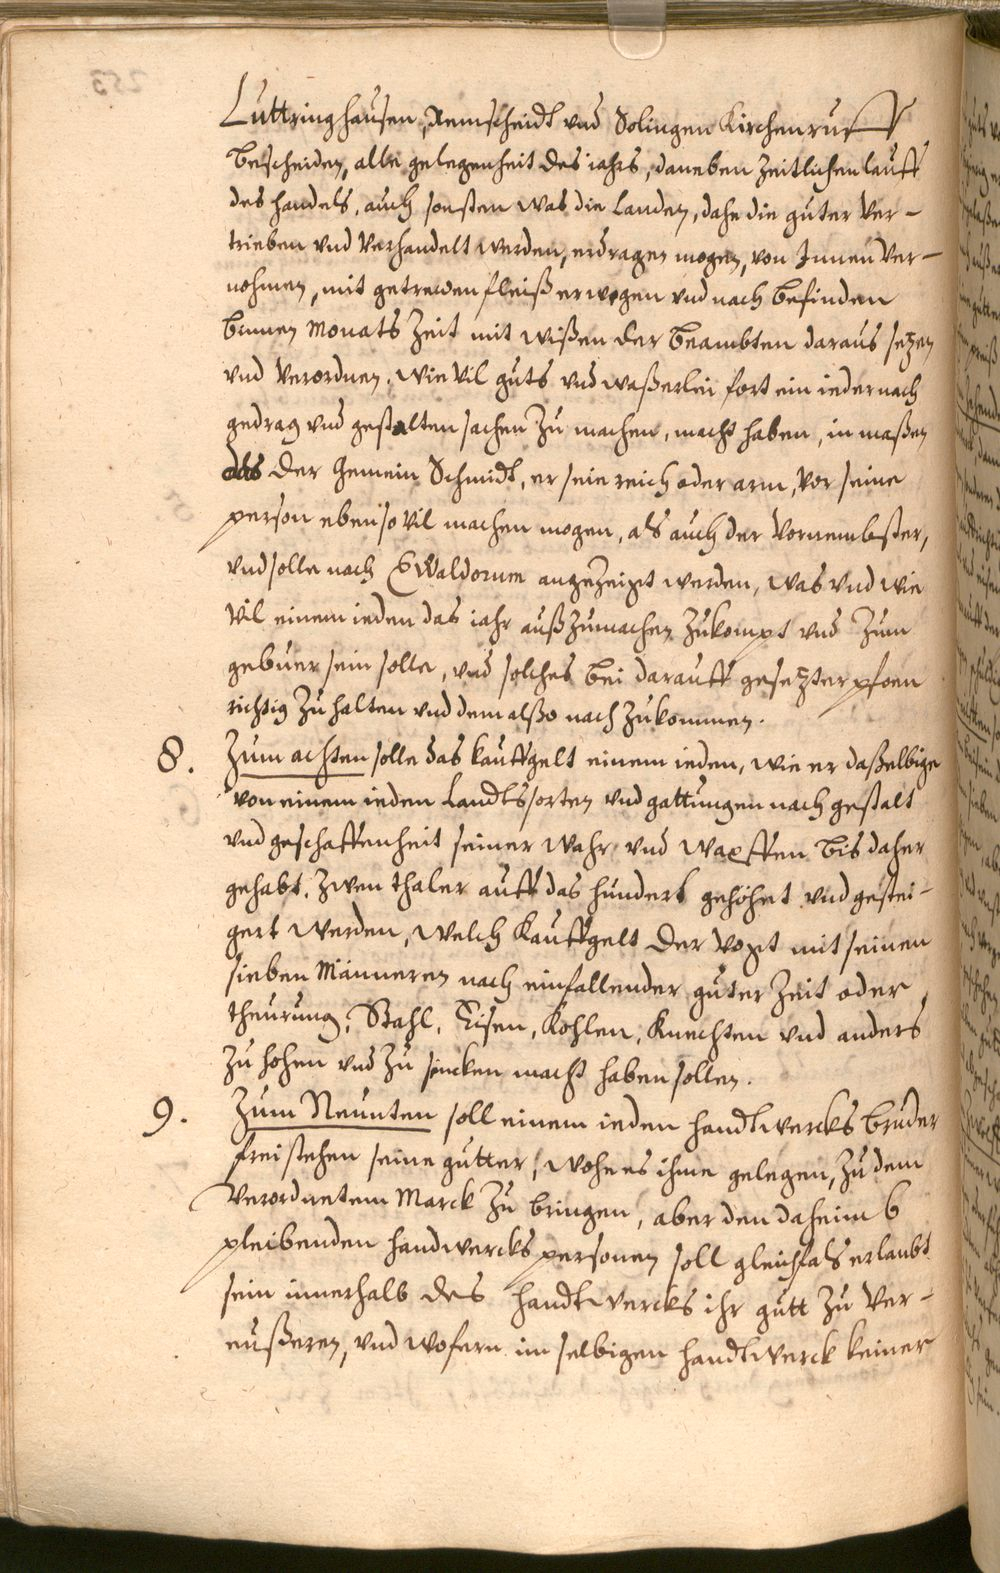 Luttringhausen, Remscheidt vnd Solingen Kirchenruff
bescheiden, alle gelegenheit des iahrs, daneben zeitlichen lauff
des handels, auch sonsten was die Landen, dahe die guter ver-
trieben vnd verhandelt werden, erdragen mogen, von Innen ver-
nohmen, mit getrewen fleiß erwogen vnd nach befinden
binnen Monats Zeit mit wißen der Beambten daraus setzen
vnd verordnen, wie vil guts vnd waßerlei sort ein ieder nach
gedrag vnd gestalten sachen zu machen, macht haben, in maßen
das der Gemein Schmidt, er seie reich oder arm, vor seine
person ebenso vil machen mogen, als auch der vornembster,
vnd solle nach Ewaldorum angezeigt werden, was vnd wie
vil einem ieden das iahr außzumachen zukompt vnd zum
gebuer sein solle, vnd solches bei darauff gesetzter phoen
richtig zu halten vnd dem alßo nach zukommen.
8. Zum achten solle das kauffgelt einem ieden, wie er daßelbige
von einem ieden Landtssorten vnd gattungen nach gestalt
vnd geschaffenheit seiner wahr vnd waffen bis daher
gehabt, zwen thaler auff das hundert gehöhet vnd gestei-
gert werden, welch Kauffgelt der Vogt mit seinen
sieben Männeren nach einfallender guter Zeit oder
theurung, Stahl, Eisen, Kohlen, Knechten vnd anders
zu hohen vnd zu sincken macht haben sollen.
9. Zum Neunten soll einem ieden handtwercks bruder
frei stehen seine gutter, wohe es ihme gelegen, zu dem
verordnetem Marck zu bringen, aber den daheim b
pleibenden handwercks personen soll gleichfals erlaubt
sein innerhalb des handtwercks ihr gutt zu ver-
eußeren, vnd wofern im selbigen handtwerck keiner